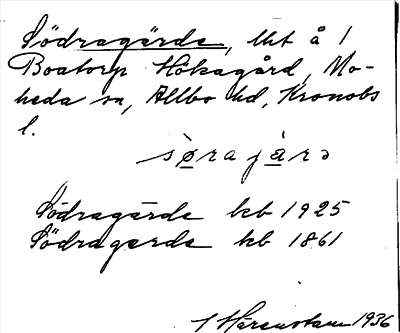 Södragärde, lht å 1
Boatorp Hökagård, Mo-
heda sn, Allbo hd, Kronobs
l.
sø̀raja̤rə
Södragärde kb 1925
Södragerde hb 1861
1936